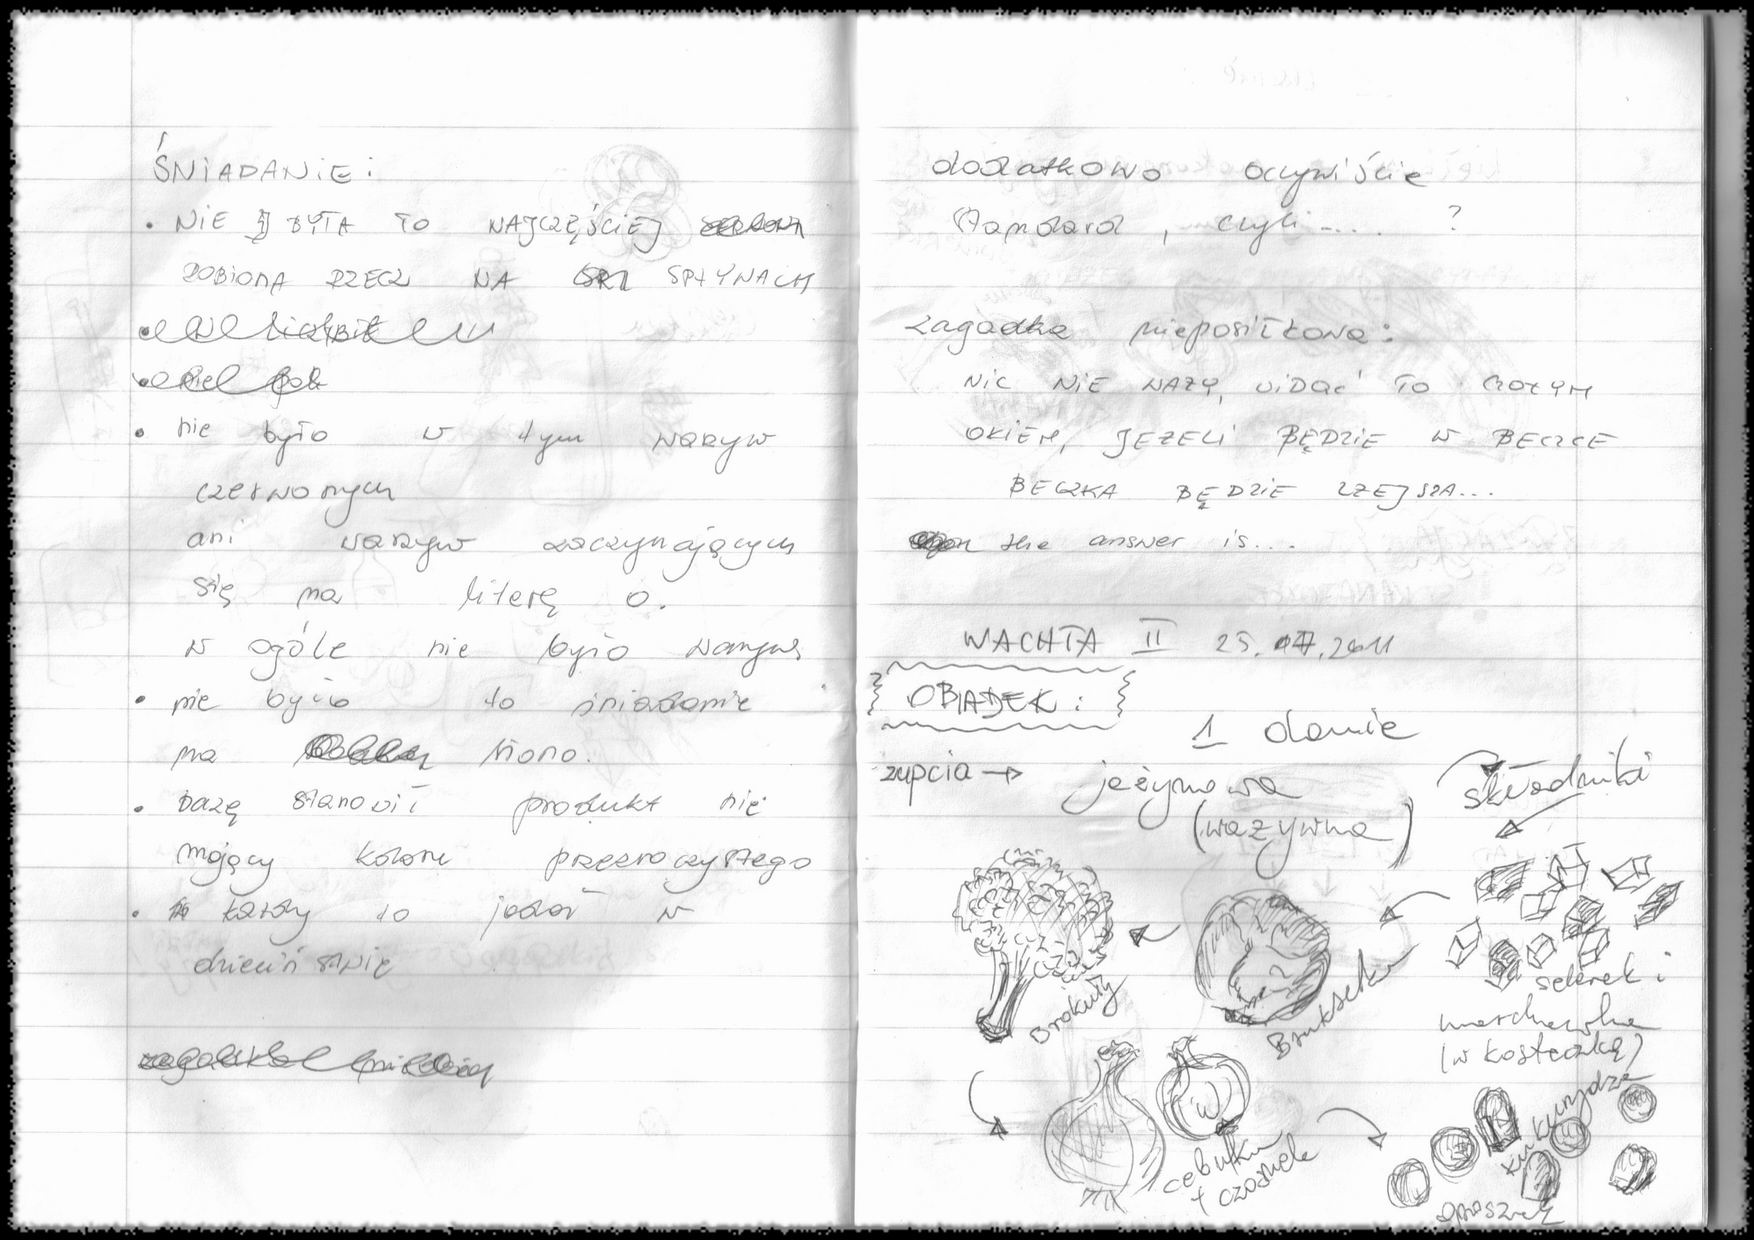 ŚNIADANIE:
• NIE BYŁA TO NAJCZĘŚCIEJ
ROBIONA RZECZ NA SPŁYWACH
• nie było w tym warzyw
czerwonych
ani warzyw zaczynających
się na literę o.
w ogóle nie było warzyw
• nie było to śniadanie
na słono.
• bazę stanowił produkt nie
mający koloru przezroczystego
• każdy to jadał w
dzieciństwie
dodatkowo oczywiście
standard, czyli .... ?
zagadka nieposiłkowa:
NIC NIE WAŻY, WIDAĆ TO GOŁYM
OKIEM, JEŻELI BĘDZIE W BECZCE
BECZKA BĘDZIE LŻEJSZA...
the answer is....
WACHTA II 25.07.2011
OBIADEK:
1 danie
zupcia → jeżynowa
(warzywna)
składniki
Brokuły
Brukselka
selerek i
marchewka
(w kosteczkę)
cebulka
+ czosnek
kukurydza
groszek